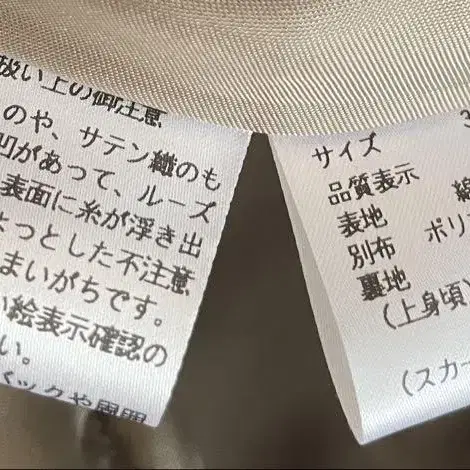 扱い上の御注意
のや、サテン織のも
凹があって、ルーズ
表面に糸が浮き出
ょっとした不注意
まいがちです。
い絵表示確認の
い。
バックや周囲
サイズ 3
品質表示
表地 綿
別布 ポリ
裏地
(上身頃)
(スカー